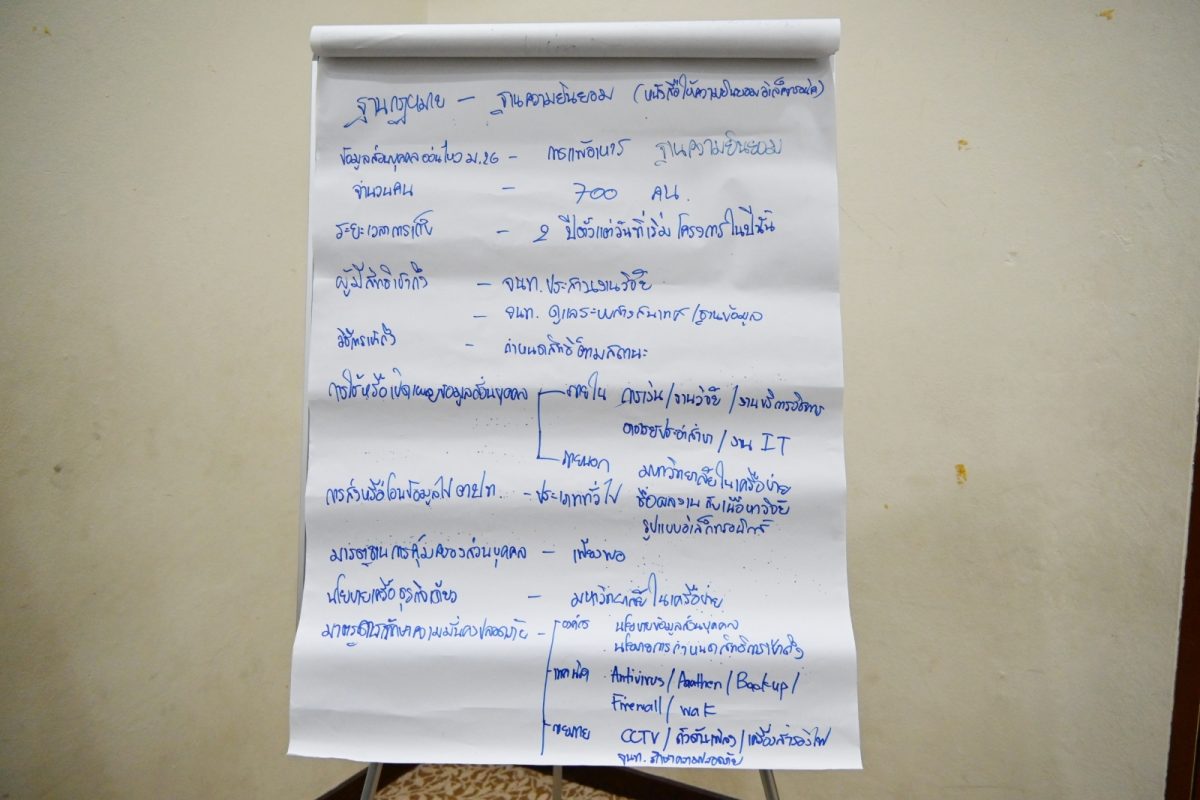 ฐานกฎหมาย — ฐานความยินยอม (หนังสือให้ความยินยอมอิเล็กทรอนิกส์)
ข้อมูลส่วนบุคคลอ่อนไหว ม.26 – การแพ้อาหาร ฐานความยินยอม
จำนวนคน – 700 คน.
ระยะเวลาการเก็บ – 2 ปีตั้งแต่วันที่เริ่มโครงการในปีนั้น
ผู้มีสิทธิเข้าถึง – จนท. ประสานงานวิจัย
– จนท. ดูแลระบบสารสนเทศ/ฐานข้อมูล
วิธีการเข้าถึง – กำหนดสิทธิตามสถานะ
การใช้หรือเปิดเผยข้อมูลส่วนบุคคล – ภายใน การเงิน/งานวิจัย/งานบริการวิชาการ
อาจารย์ประจำสาขา/งาน IT
– ภายนอก มหาวิทยาลัยในเครือข่าย
การส่งหรือโอนข้อมูลไป ตปท. – ประเภททั่วไป ชื่อผลงาน กับเนื้อหาวิจัย
รูปแบบอิเล็กทรอนิกส์
มาตรฐานการคุ้มครองส่วนบุคคล – เพียงพอ
นโยบายเครือธุรกิจเดียว – มหาวิทยาลัยในเครือข่าย
มาตรการรักษาความมั่นคงปลอดภัย – องค์กร นโยบายข้อมูลส่วนบุคคล
นโยบายการกำหนดสิทธิการเข้าถึง
– เทคนิค Antivirus / / Backup /
Firewall / WAF
– กายภาพ CCTV / ถังดับเพลิง / เครื่องสำรองไฟ
จนท. รักษาความปลอดภัย